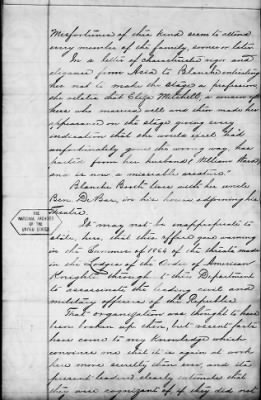 Misfortunes of this kind seem to attend
every member of the family, sooner or later.
In a letter of characteristic vigor and
elegance from Asia to Blanche entreating
her not to make the stage a profession,
she states that Eliza Mitchell, a cousin of
theirs who married well and then made her
appearance on the stage giving every
indication that she would excel "did
unfortunately go the wrong way, has
parted from her husband (William Ward)
and is now a miserable creature."
Blanche Booth lives with her uncle
Ben. De Bar, in his house adjoining his
theatre.
It may not be inappropriate to
state, here, that this office gave warning
in the Summer of 1864 of the threats made
in the Lodges of the Order of American
Knights through this Department
to assassinate the leading civil and
military officers of the Republic
That organization was thought to have
been broken up then, but recent facts
have come to my knowledge which
convince me that it is again at work
here more secretly than ever, and its
present leaders clearly intimate that
they are cognizant of, if they did not
THE
NATIONAL ARCHIVES
OF THE
UNITED STATES